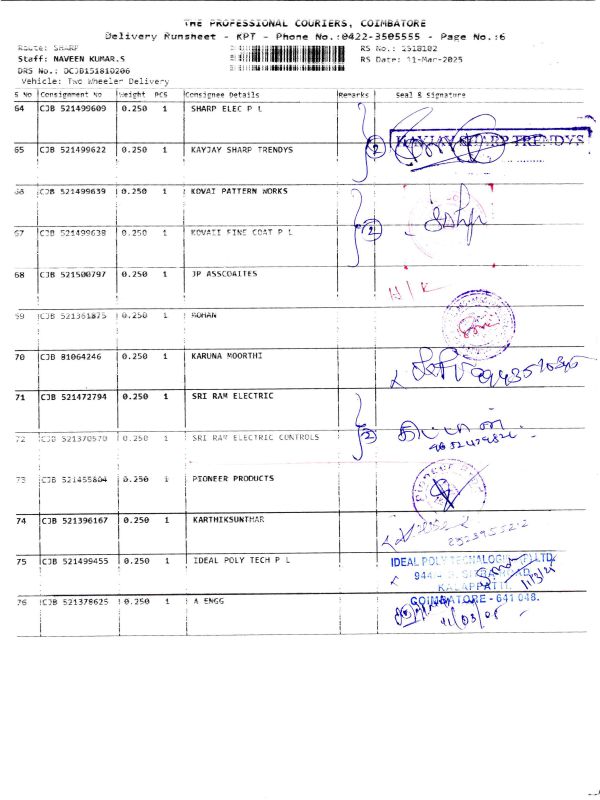 THE PROFESSIONAL COURIERS, COIMBATORE
Delivery Runsheet - KPT - Phone No.:0422-3505555 - Page No.:6
Route: SHARP
RS No.: 1518102
Staff: NAVEEN KUMAR.S
RS Date: 11-Mar-2025
DRS No.: DCJB151810206
Vehicle: Two Wheeler Delivery
S No Consignment No Weight PCS Consignee Details Remarks Seal & Signature
64 CJB 521499609 0.250 1 SHARP ELEC P L
65 CJB 521499622 0.250 1 KAYJAY SHARP TRENDYS 2 KAYJAY SHARP TRENDYS
66 CJB 521499639 0.250 1 KOVAI PATTERN WORKS
67 CJB 521499638 0.250 1 KOVAII FINE COAT P L 2
68 CJB 521500797 0.250 1 JP ASSCOAITES
69 CJB 521361875 0.250 1 ROHAN
70 CJB 81064246 0.250 1 KARUNA MOORTHI
71 CJB 521472794 0.250 1 SRI RAM ELECTRIC
72 CJB 521370570 0.250 1 SRI RAM ELECTRIC CONTROLS 2
73 CJB 521455804 0.250 1 PIONEER PRODUCTS
74 CJB 521396167 0.250 1 KARTHIKSUNTHAR
75 CJB 521499455 0.250 1 IDEAL POLY TECH P L
IDEAL POLY TECNALOGIES (P) LTD
944
KALAPPATTI
COIMBATORE - 641 048.
11/3/25
76 CJB 521378625 0.250 1 A ENGG